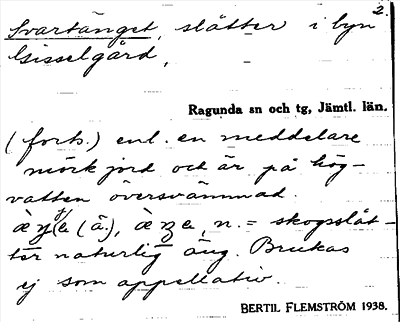 2.
Svartänget, slåtter i byn
Gisselgård,
Ragunda sn och tg, Jämtl. län.
(forts.) enl. en meddelare
mörk jord och är på hög-
vatten översvämmad.
(å.), n. = skogsslåt-
ter naturlig äng. Brukas
ej som appellativ.
BERTIL FLEMSTRÖM 1938.